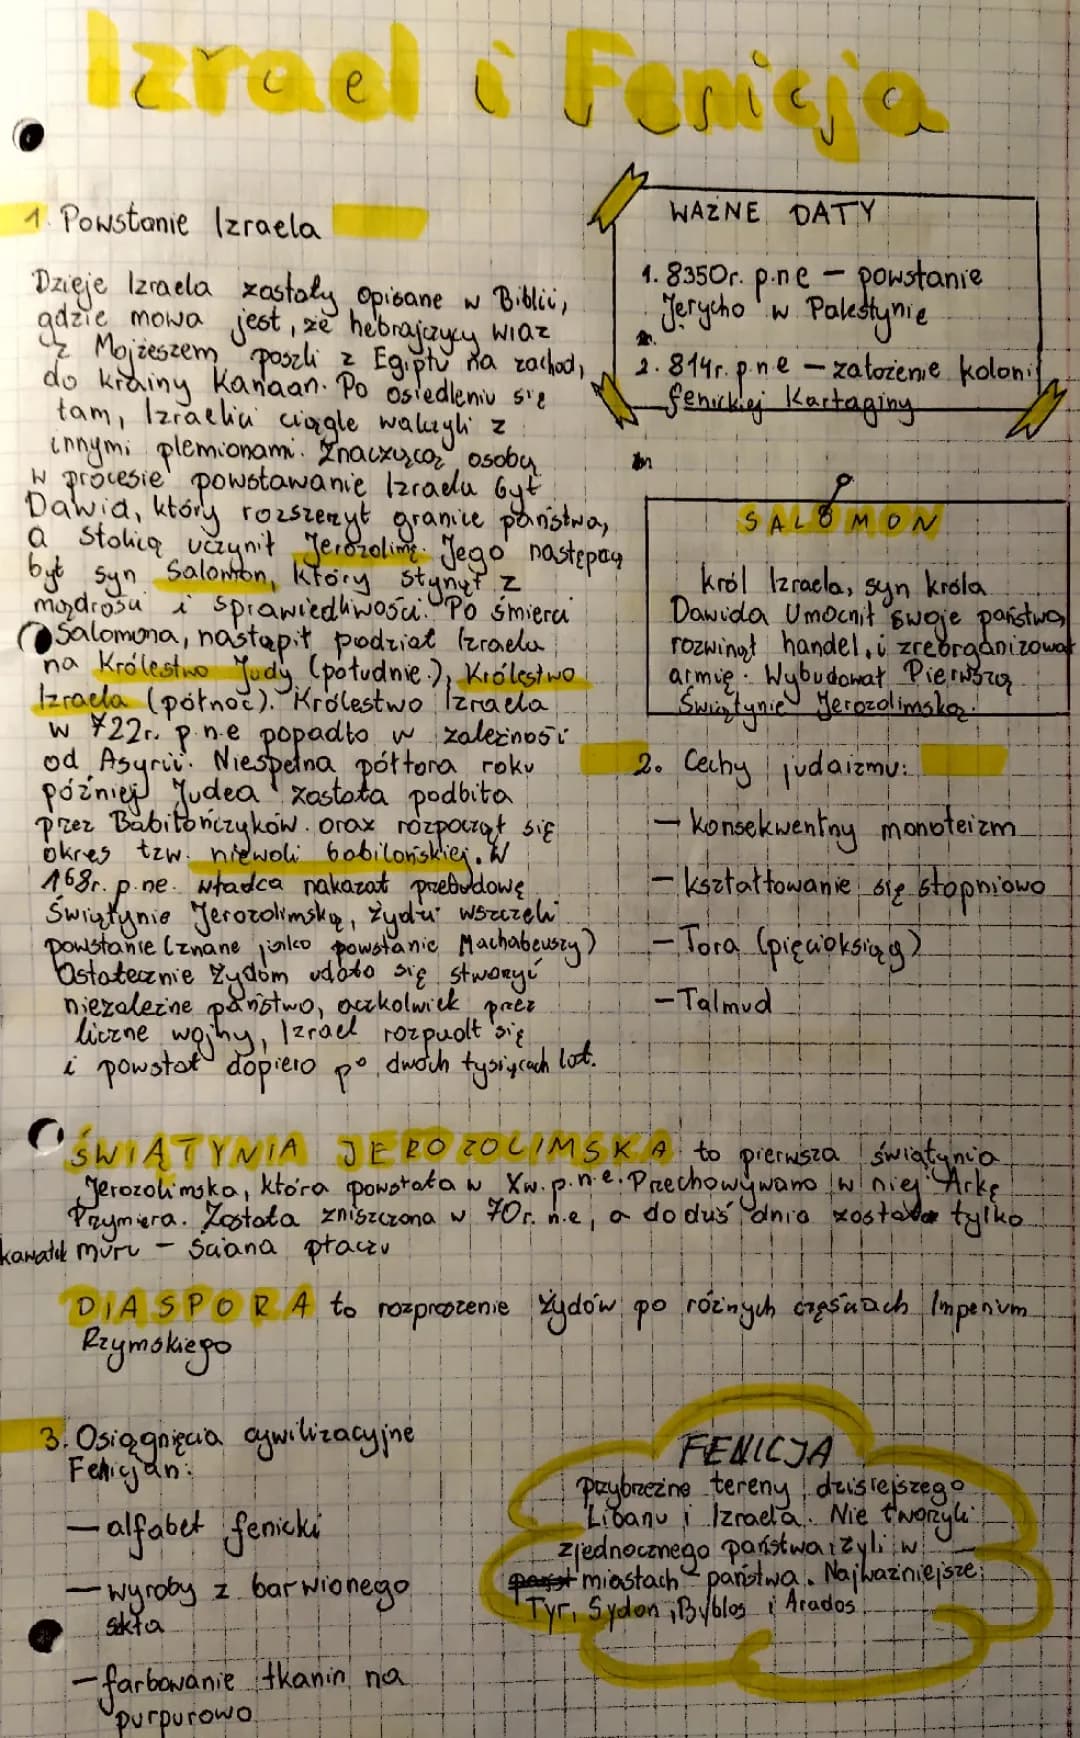 Izrael i Fenicja
1. Powstanie Izraela
Dzieje Izraela zostały opisane w Biblii,
gdzie mowa jest, że hebrajczycy wraz
z Mojżeszem poszli z Egiptu na zachod,
do krainy Kanaan. Po osiedleniu się
tam, Izraelici ciągle walczyli z
innymi plemionami. Znaczącą osobą
w procesie powstawanie Izraelu był
Dawid, który rozszerzył granice państwa,
a stolicą uczynił Jerozolimę. Jego następcą
był syn Salomon, który słynął z
mądrości i sprawiedliwości. Po śmierci
Salomona, nastąpił podział Izraelu
na Królestwo Judy (południe), Królestwo
Izraela (północ). Królestwo Izraela
w 722r. p.n.e popadło w zależność
od Asyrii. Niespełna półtora roku
później Judea została podbita
przez Babilończyków. oraz rozpoczął się
okres tzw. niewoli babilońskiej. W
168r. p.ne. władca nakazał przebudowę
Świątynię Jerozolimską, Żydzi wszczęli
powstanie (znane jako powstanie Machabeuszy)
Ostatecznie Żydom udało się stworzyć
niezależne państwo, aczkolwiek przez
liczne wojny, Izrael rozpadł się
i powstał dopiero po dwóch tysiącach lat.
WAŻNE DATY
1. 8350r. p.ne – powstanie
Jerycho w Palestynie
2. 814r. p.n.e – założenie koloni
fenickiej Kartaginy
SALOMON
król Izraela, syn króla
Dawida Umocnił swoje państwo,
rozwinął handel, i zreorganizował
armię. Wybudował Pierwszą
Świątynię Jerozolimską.
2. Cechy judaizmu:
– konsekwentny monoteizm
– kształtowanie się stopniowo
– Tora (pięcioksiąg)
– Talmud
ŚWIĄTYNIA JEROZOLIMSKA to pierwsza świątynia
Jerozolimska, która powstała w Xw. p.n.e. Przechowywano w niej Arkę
Przymierza. Została zniszczona w 70r. n.e, a do dziś dnia został tylko
kawałek muru – ściana płaczu
DIASPORA to rozproszenie Żydów po różnych częściach Imperium
Rzymskiego
3. Osiągnięcia cywilizacyjne
Fenicjan:
– alfabet fenicki
– wyroby z barwionego
szkła
– farbowanie tkanin na
purpurowo
FENICJA
Przybrzeżne tereny dzisiejszego
Libanu i Izraela. Nie tworzyli
zjednoczonego państwa i żyli w
miastach – państwa. Najważniejsze:
Tyr, Sydon, Byblos i Arados